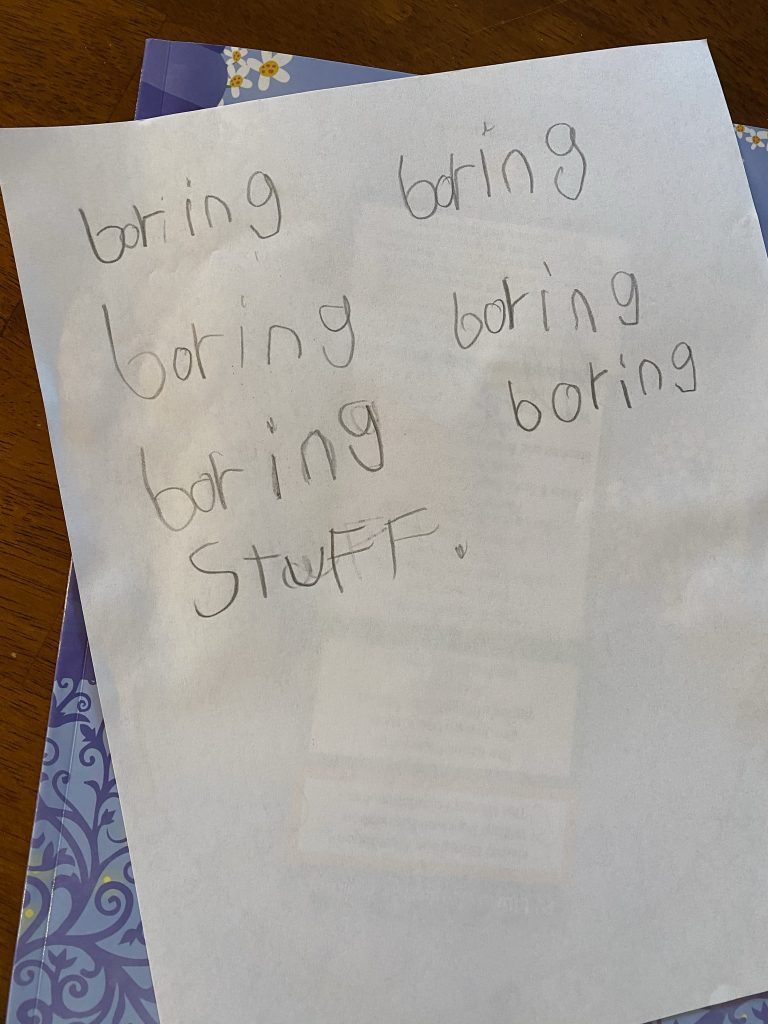 boriing boring
boring boring
boring
boring
StuFF.